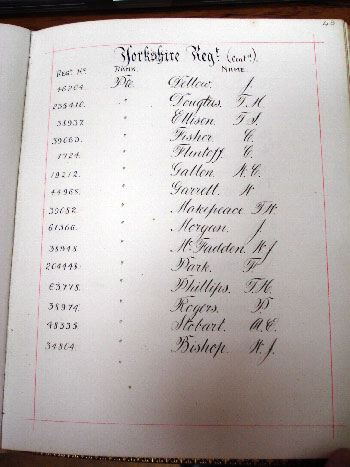 48
Yorkshire Regt. (Cont'd)
Regt. No. Rank. Name.
46204. Pte. Dellow. J.
235410. " Douglas. T. H.
38937. " Ellison. T. S.
39063. " Fisher. C.
7724. " Flintoff. C.
19212. " Gallon. A. C.
44968. " Garrett. H.
39082. " Makepeace. T. W.
61366. " Morgan. J.
38948. " McFadden. W. J.
204448. " Park. F.
63778. " Phillips. T. H.
38974. " Rogers. D.
48335. " Stobart. A. E.
34804. " Bishop. W. J.